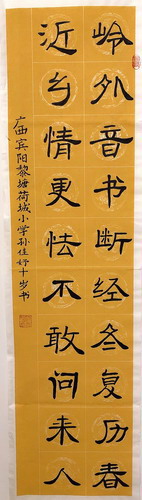 岭外音书断经冬复历春
近乡情更怯不敢问来人
广西宾阳黎塘荷城小学孙佳妤十岁书